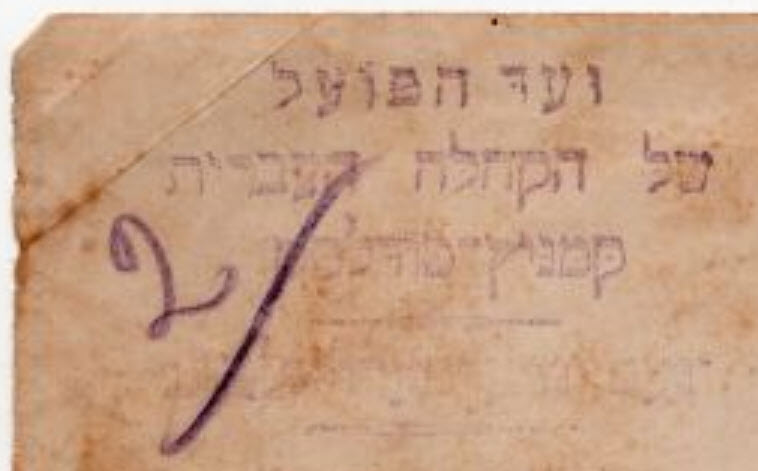 ועד הפועל
של הקהלה העברית
קמניץ־פודולסק
2/